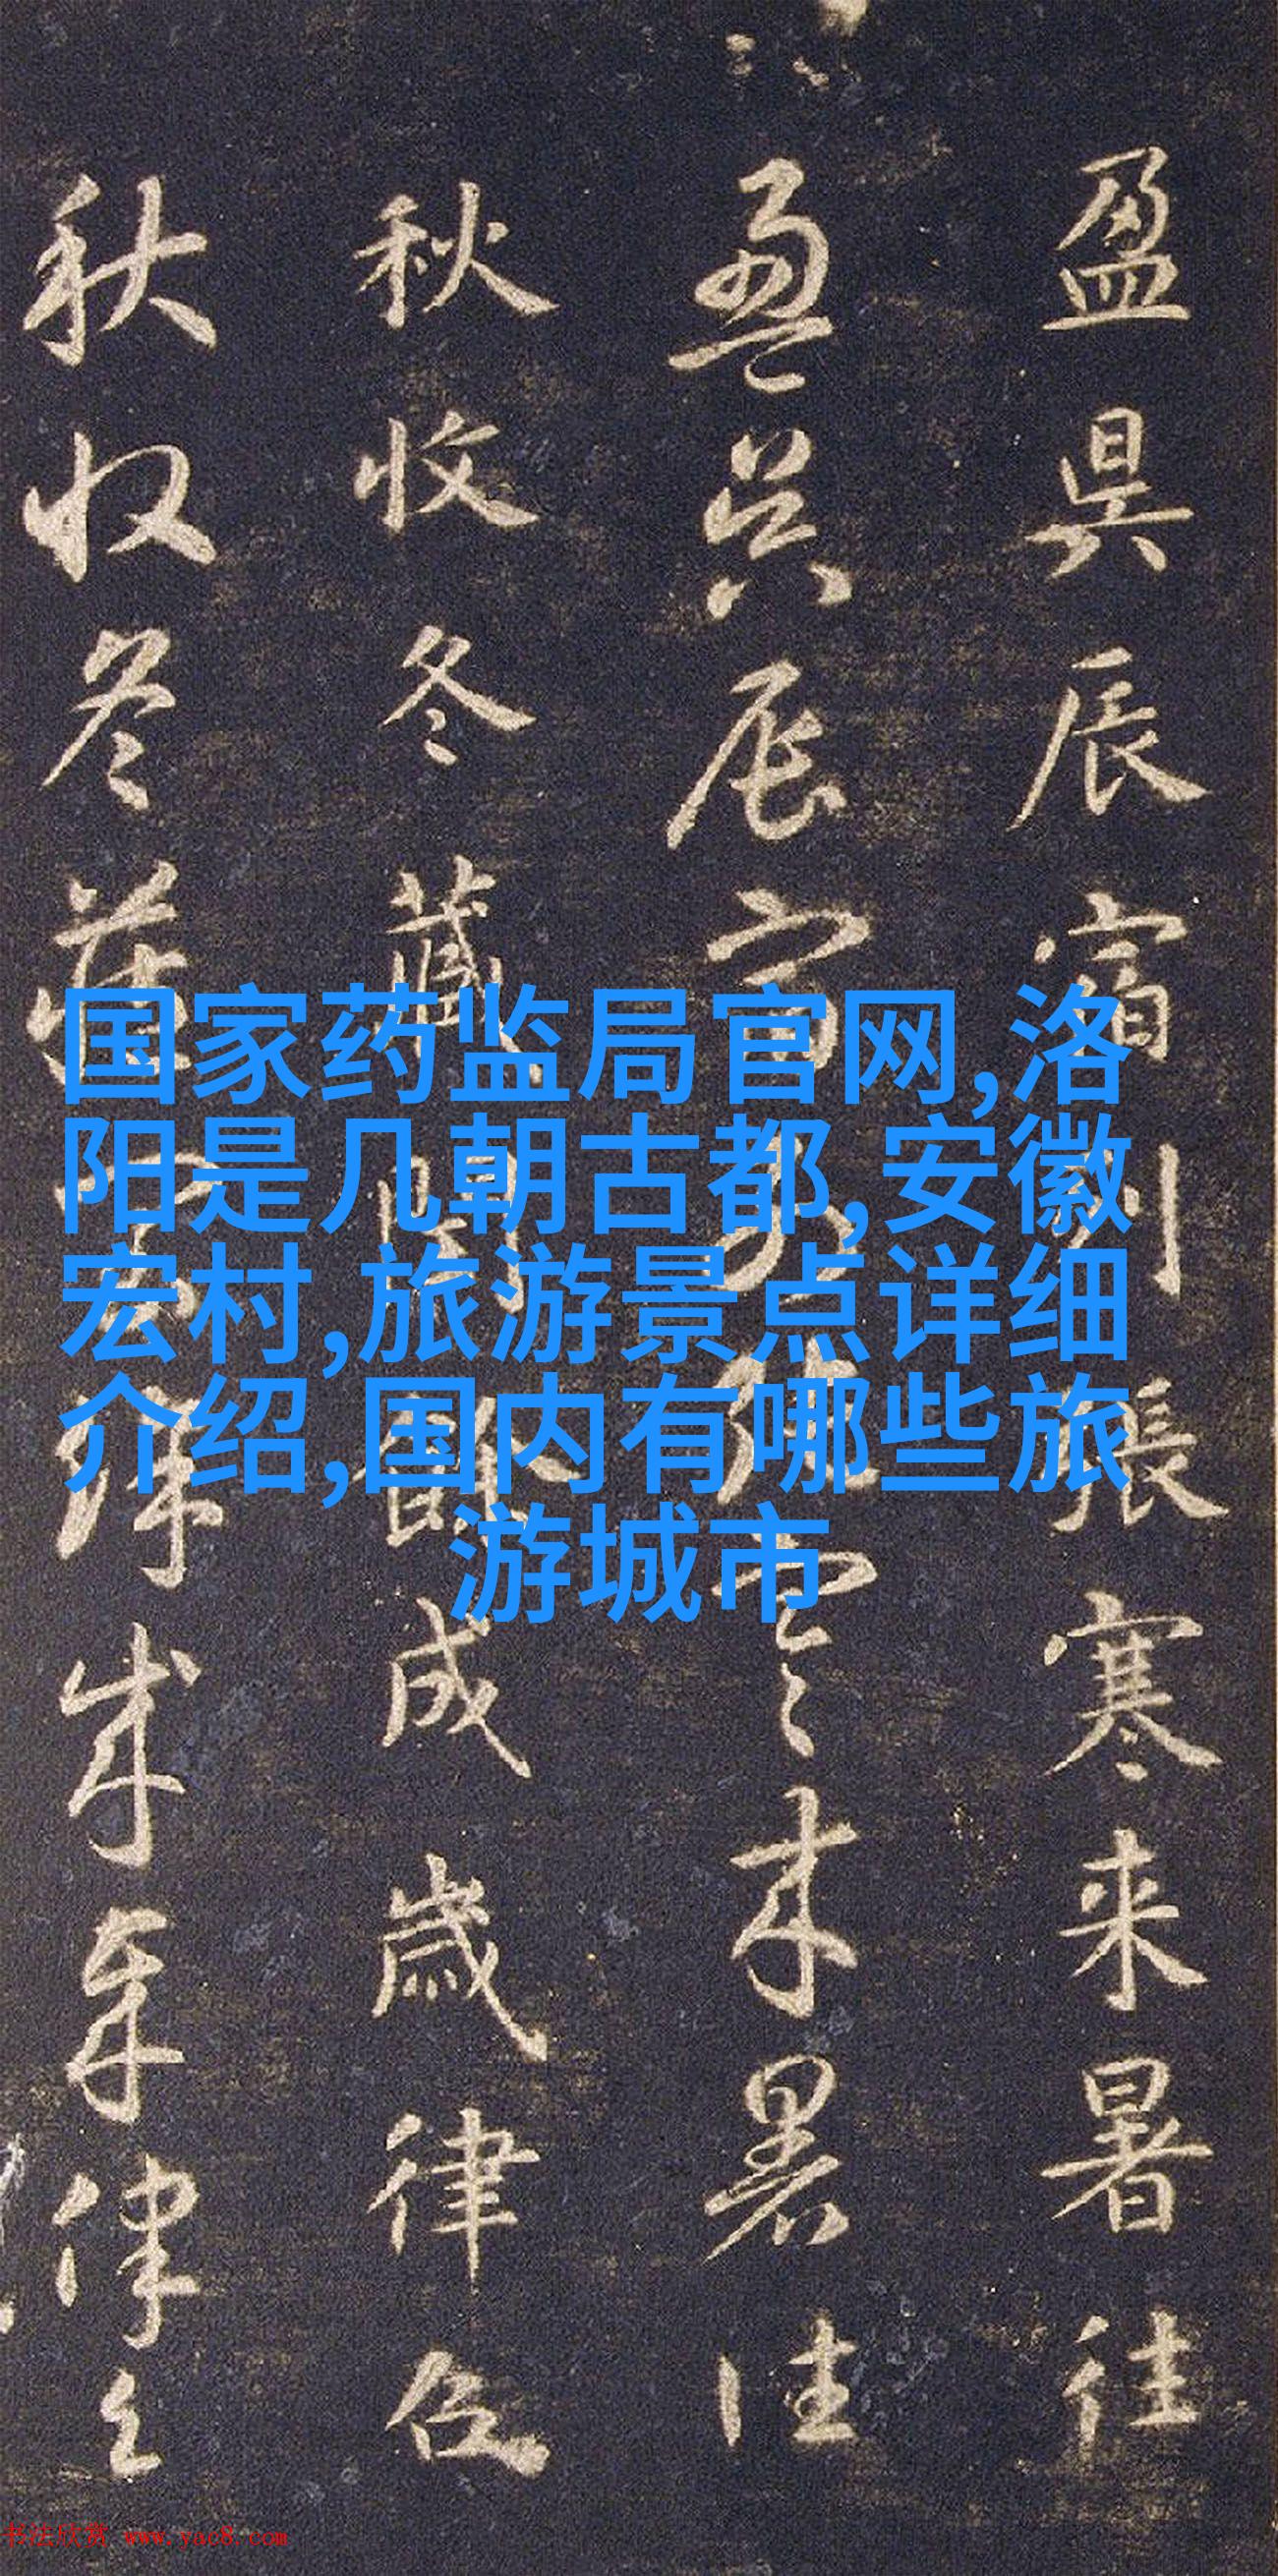 盈昃辰宿列張寒来暑往
盈昃辰宿列張寒来暑往
秋收冬藏閏餘成歲律召
秋收冬藏閏餘成歲律召
国家药监局官网,洛
阳是几朝古都,安徽
宏村,旅游景点详细
介绍,国内有哪些旅
游城市
书法欣赏 www.yac8.com